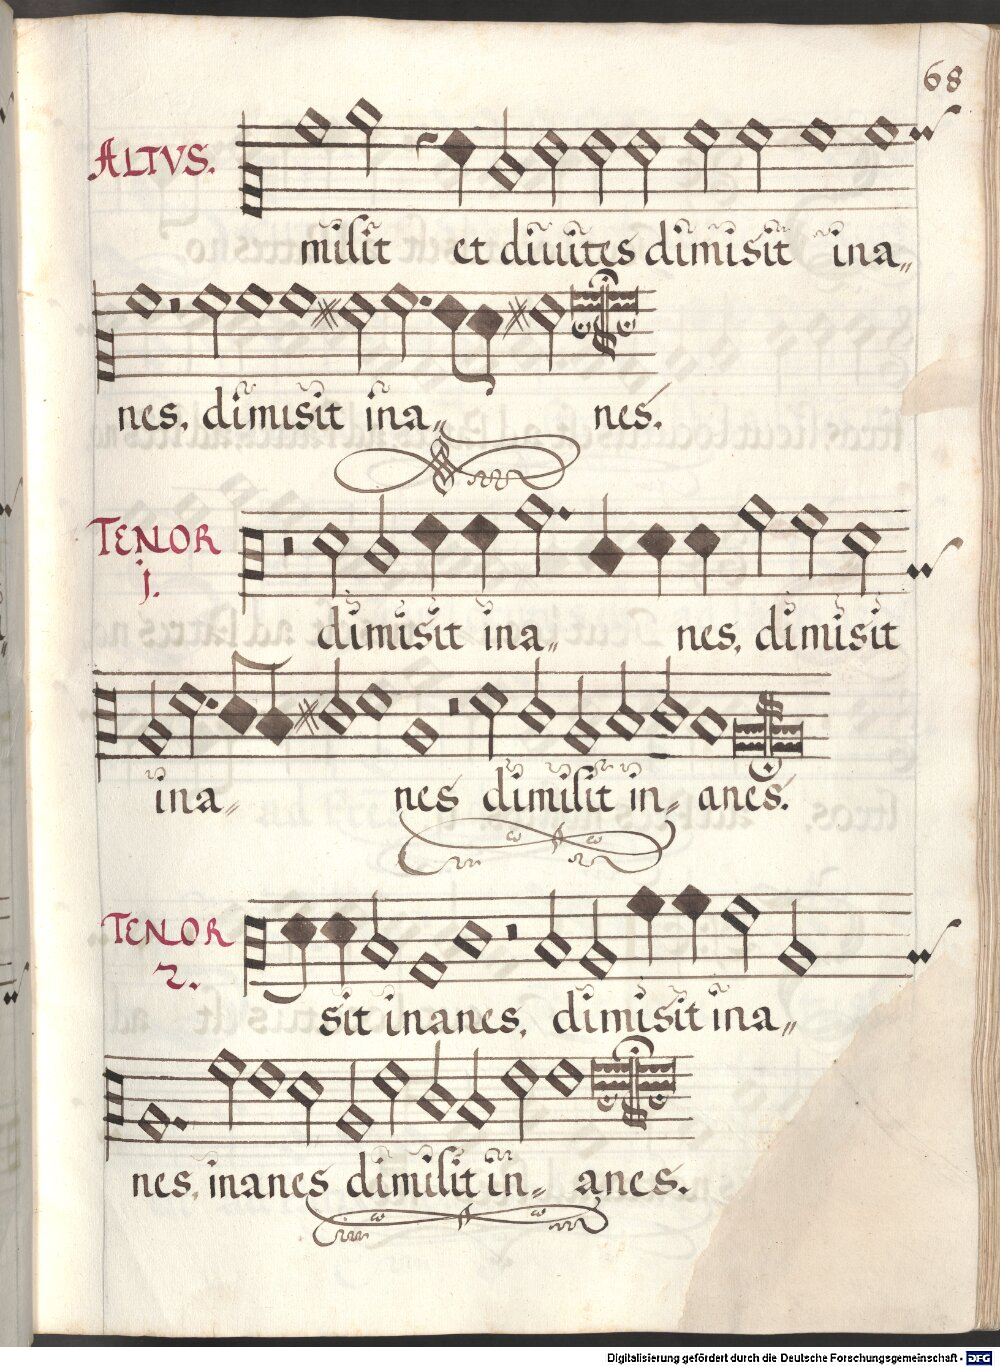 68
ALTVS.
misit et diuites dimisit ina„
nes. dimisit ina„ nes.
TENOR
j.
dimisit ina„ nes. dimisit
ina„ nes dimisit in„ anes.
TENOR
2.
sit inanes. dimisit ina„
nes. inanes dimisit in„ anes.
Digitalisierung gefördert durch die Deutsche Forschungsgemeinschaft - DFG